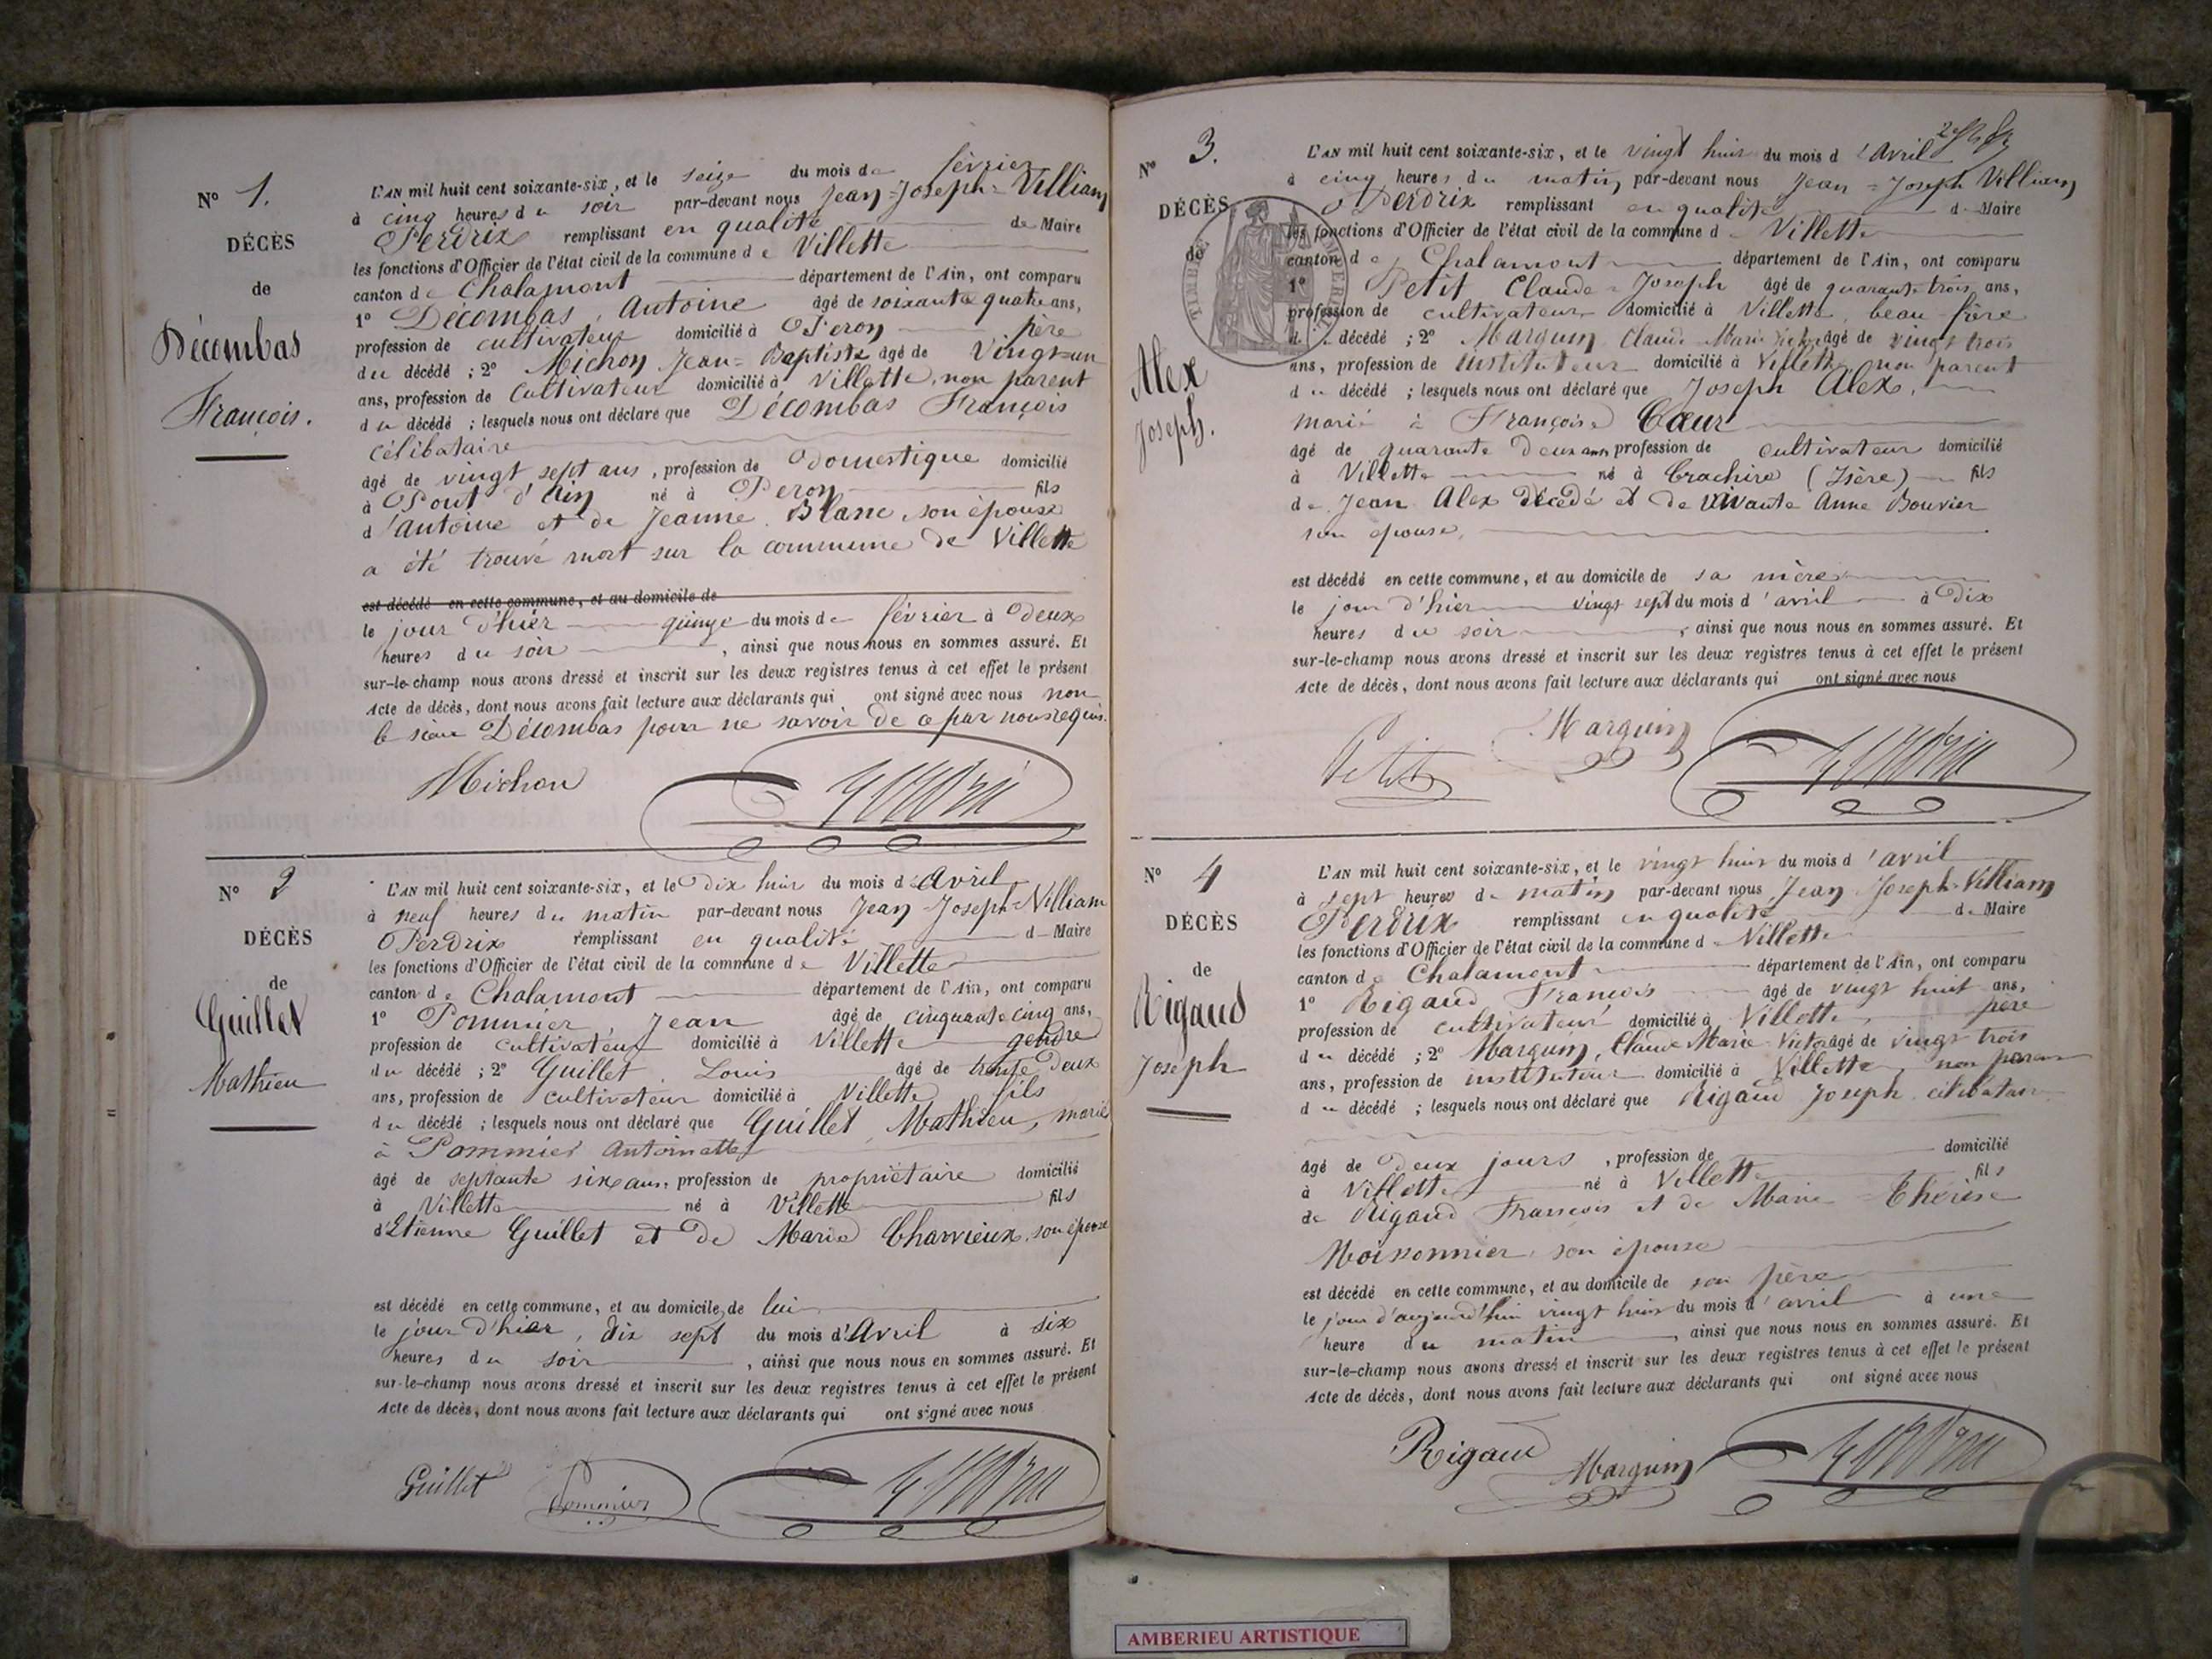 N° 1.
DÉCÈS
de
Décombas
François.
L'AN mil huit cent soixante-six, et le seize du mois de février
à cinq heures du soir par-devant nous Jean-Joseph-Villiam
Perdrix remplissant en qualité de Maire
les fonctions d'Officier de l'état civil de la commune de Villette
canton de Chalamont département de l'Ain, ont comparu
1° Décombas, Antoine âgé de soixante quatre ans,
profession de cultivateur domicilié à Peron père
du décédé ; 2° Michon Jean-Baptiste âgé de Vingt-un
ans, profession de Cultivateur domicilié à Villette, non parent
du décédé ; lesquels nous ont déclaré que Décombas François
célibataire
âgé de vingt sept ans, profession de Domestique domicilié
à Pont d'Ain né à Peron fils
d'Antoine et de Jeanne Blanc, son épouse
a été trouvé mort sur la commune de Villette
est décédé en cette commune, et au domicile de
le jour d'hier quinze du mois de février à Deux
heures du soir, ainsi que nous nous en sommes assuré. Et
sur-le-champ nous avons dressé et inscrit sur les deux registres tenus à cet effet le présent
Acte de décès, dont nous avons fait lecture aux déclarants qui ont signé avec nous non
le sieur Décombas pour ne savoir de ce par nous requis.
Michon
N° 2
DÉCÈS
de
Guillet
Mathieu
L'AN mil huit cent soixante-six, et le Dix huit du mois d'Avril
à neuf heures du matin par-devant nous Jean-Joseph-Villiam
Perdrix remplissant en qualité de Maire
les fonctions d'Officier de l'état civil de la commune de Villette
canton de Chalamont département de l'Ain, ont comparu
1° Pommier, Jean âgé de cinquante cinq ans,
profession de cultivateur domicilié à Villette gendre
du décédé ; 2° Guillet, Louis âgé de trente Deux
ans, profession de cultivateur domicilié à Villette fils
du décédé ; lesquels nous ont déclaré que Guillet, Mathieu, marié
à Pommier Antoinette
âgé de septante six ans, profession de propriétaire domicilié
à Villette né à Villette fils
d'Etienne Guillet et de Marie Charvieux, son épouse
est décédé en cette commune, et au domicile de lui
le jour d'hier, dix sept du mois d'Avril à six
heures du soir, ainsi que nous nous en sommes assuré. Et
sur-le-champ nous avons dressé et inscrit sur les deux registres tenus à cet effet le présent
Acte de décès, dont nous avons fait lecture aux déclarants qui ont signé avec nous
Guillet Pommier
N° 3.
DÉCÈS
de
Alex
Joseph.
L'AN mil huit cent soixante-six, et le vingt huit du mois d'Avril
à cinq heures du matin par-devant nous Jean-Joseph Villiam
Perdrix remplissant en qualité de Maire
les fonctions d'Officier de l'état civil de la commune de Villette
canton de Chalamont département de l'Ain, ont comparu
1° Petit Claude-Joseph âgé de quarante trois ans,
profession de cultivateur domicilié à Villette, beau-frère
du décédé ; 2° Marguin Claude Marie Victor âgé de vingt trois
ans, profession de Instituteur domicilié à Villette, non parent
du décédé ; lesquels nous ont déclaré que Joseph Alex,
marié à Françoise Cœur
âgé de quarante Deux ans profession de cultivateur domicilié
à Villette né à Crachire (Isère) fils
de Jean Alex décédé et de vivante Anne Bouvier
son épouse,
est décédé en cette commune, et au domicile de sa mère
le jour d'hier vingt sept du mois d'avril à Dix
heures du soir, ainsi que nous nous en sommes assuré. Et
sur-le-champ nous avons dressé et inscrit sur les deux registres tenus à cet effet le présent
Acte de décès, dont nous avons fait lecture aux déclarants qui ont signé avec nous
Petit Marguin
N° 4
DÉCÈS
de
Rigaud
Joseph
L'AN mil huit cent soixante-six, et le vingt huit du mois d'avril
à sept heures du matin par-devant nous Jean-Joseph-Villiam
Perdrix remplissant en qualité de Maire
les fonctions d'Officier de l'état civil de la commune de Villette
canton de Chalamont département de l'Ain, ont comparu
1° Rigaud François âgé de vingt huit ans,
profession de cultivateur domicilié à Villette, père
du décédé ; 2° Marguin, Claude Marie Victor âgé de vingt trois
ans, profession de instituteur domicilié à Villette, non parent
du décédé ; lesquels nous ont déclaré que Rigaud Joseph célibataire
âgé de Deux jours, profession de domicilié
à Villette né à Villette fils
de Rigaud François et de Marie-Thérèse
Moissonnier, son épouse
est décédé en cette commune, et au domicile de son père
le jour d'aujourd'hui vingt huit du mois d'avril à une
heure du matin, ainsi que nous nous en sommes assuré. Et
sur-le-champ nous avons dressé et inscrit sur les deux registres tenus à cet effet le présent
Acte de décès, dont nous avons fait lecture aux déclarants qui ont signé avec nous
Rigaud Marguin
AMBERIEU ARTISTIQUE